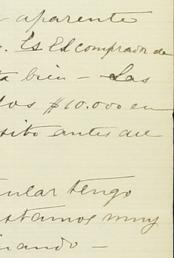 aparente
Es El comprador de
bien — Las
los $10.000 en
sito antes de
tengo
estamos muy
ando —